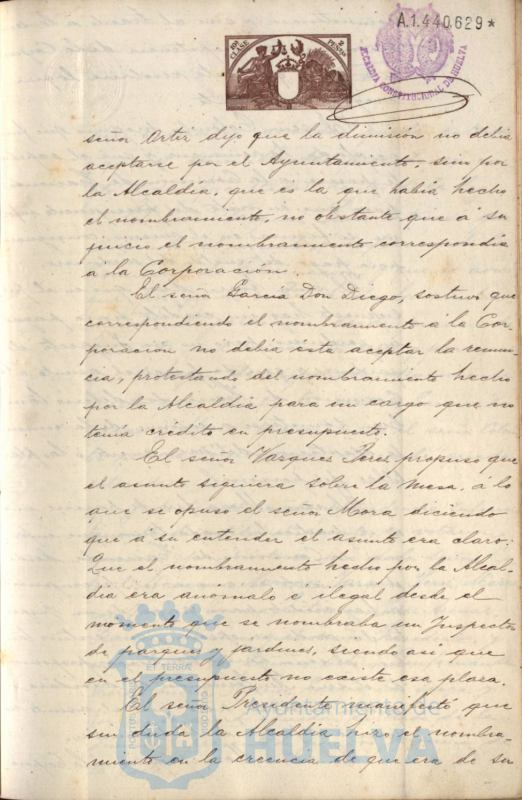 A.1.440.629*
10ª CLASE
2 PESETAS
ALCALDIA CONSTITUCIONAL DE HUELVA
señor Ortiz dijo que la dimisión no debía
aceptarse por el Ayuntamiento, sino por
la Alcaldía, que es la que había hecho
el nombramiento, no obstante que á su
juicio el nombramiento correspondía
á la Corporación.
El señor Garcia Don Diego, sostuvo que
correspondiendo el nombramiento á la Cor-
poracion no debia esta aceptar la renun-
cia, protestando del nombramiento hecho
por la Alcaldia, para un cargo que no
tenia crédito en presupuesto.
El señor Vazquez Perez, propuso que
el asunto siguiera sobre la mesa, á lo
que se opuso el señor Mora diciendo
que á su entender el asunto era claro:
Que el nombramiento hecho por la Alcal-
dia era anómalo é ilegal desde el
momento que se nombraba un Inspector
de parques y jardines, siendo asi que
en el presupuesto no existe esa plaza.
El señor Presidente manifestó que
sin duda la Alcaldia hizo el nombra-
miento en la creencia de que era de su
ET TERRAE
Ayuntamiento de
HUELVA